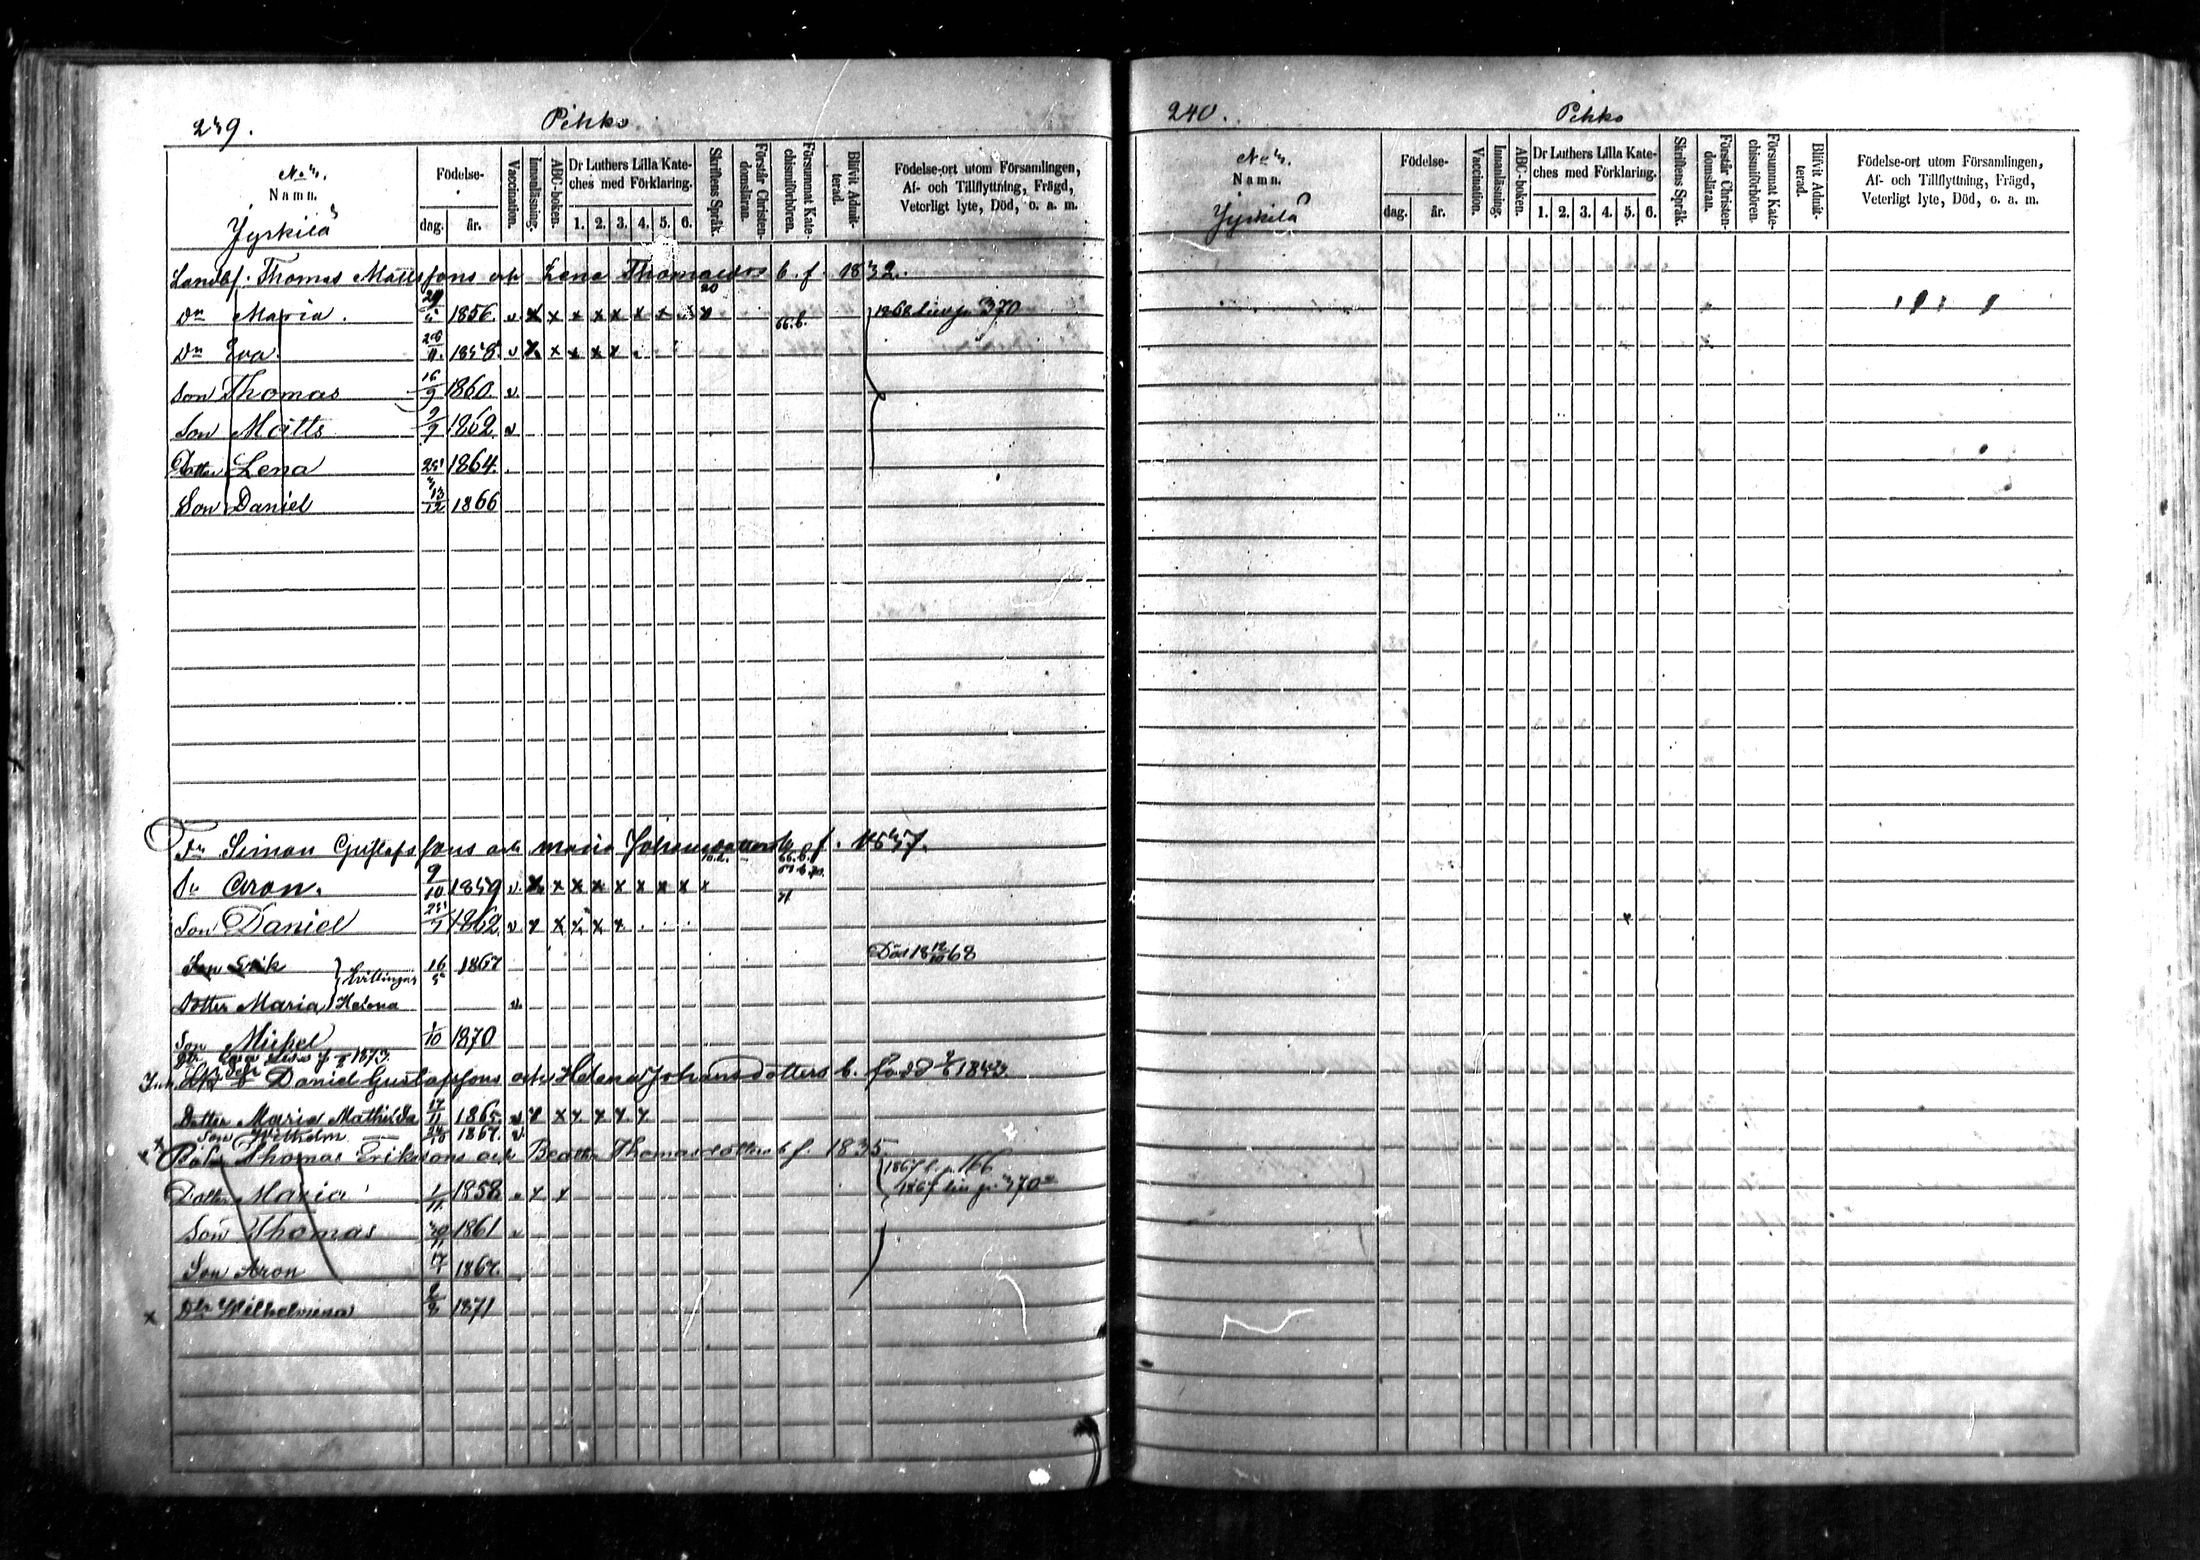 239.
Pihko
No 4.
Namn.
Jyrkilä
Födelse-
dag.
år.
Vaccination.
Innanläsning.
ABC-boken.
Dr Luthers Lilla Kate-
ches med Förklaring.
1. 2. 3. 4. 5. 6.
Skriftens Språk.
Förstår Christen-
domsläran.
Försummat Kate-
chismiförhören.
Blifvit Admit-
terad.
Födelse-ort utom Församlingen,
Af- och Tillflyttning, Frägd,
Veterligt lyte, Död, o. a. m.
Landbf. Thomas Mattsfons och Lena Thomasdrs b. f. 1832.
Dr Maria. 29/5 1856. v x x x x x x x x 66.b. 1868 lever p. 370
Dr Eva. 1858. v x x x x x
Son Thomas 16/9 1860. v.
Son Matts 9/9 1862 v
Dotter Lena 25/3 1864.
Son Daniel 13/12 1866
Dr Simon Gustafsfons och Maria Johansdotters b f. 1837.
Sn Aron. 9/10 1859 v. x x x x x x x x x
Son Daniel 25/7 1862 v x x x x x
Son Erik 16/5 1867 Död 18 12/10 68
Tvillingar
Dotter Maria Helena v.
Son Michel 1/10 1870
Dtr Eva Lisa f. 1873.
Inh. Daniel Gustafsfons och Helena Johansdotters b. född 1843
Dotter Maria Mathilda 17/11 1865. v x x x x x x
Son Wilhelm 1867. v.
Thomas Erikssons och Beata Thomasdotters b f. 1835.
1867 f. p. 166
Dotter Maria 1/11 1858 v x x 1867 lev p. 370
Son Thomas 30/11 1861 v
Son Aron 1867.
x Dtr Wilhelmina 2/8 1871
240.
Pihko
No 4.
Namn.
Jyrkilä
Födelse-
dag.
år.
Vaccination.
Innanläsning.
ABC-boken.
Dr Luthers Lilla Kate-
ches med Förklaring.
1. 2. 3. 4. 5. 6.
Skriftens Språk.
Förstår Christen-
domsläran.
Försummat Kate-
chismiförhören.
Blifvit Admit-
terad.
Födelse-ort utom Församlingen,
Af- och Tillflyttning, Frägd,
Veterligt lyte, Död, o. a. m.